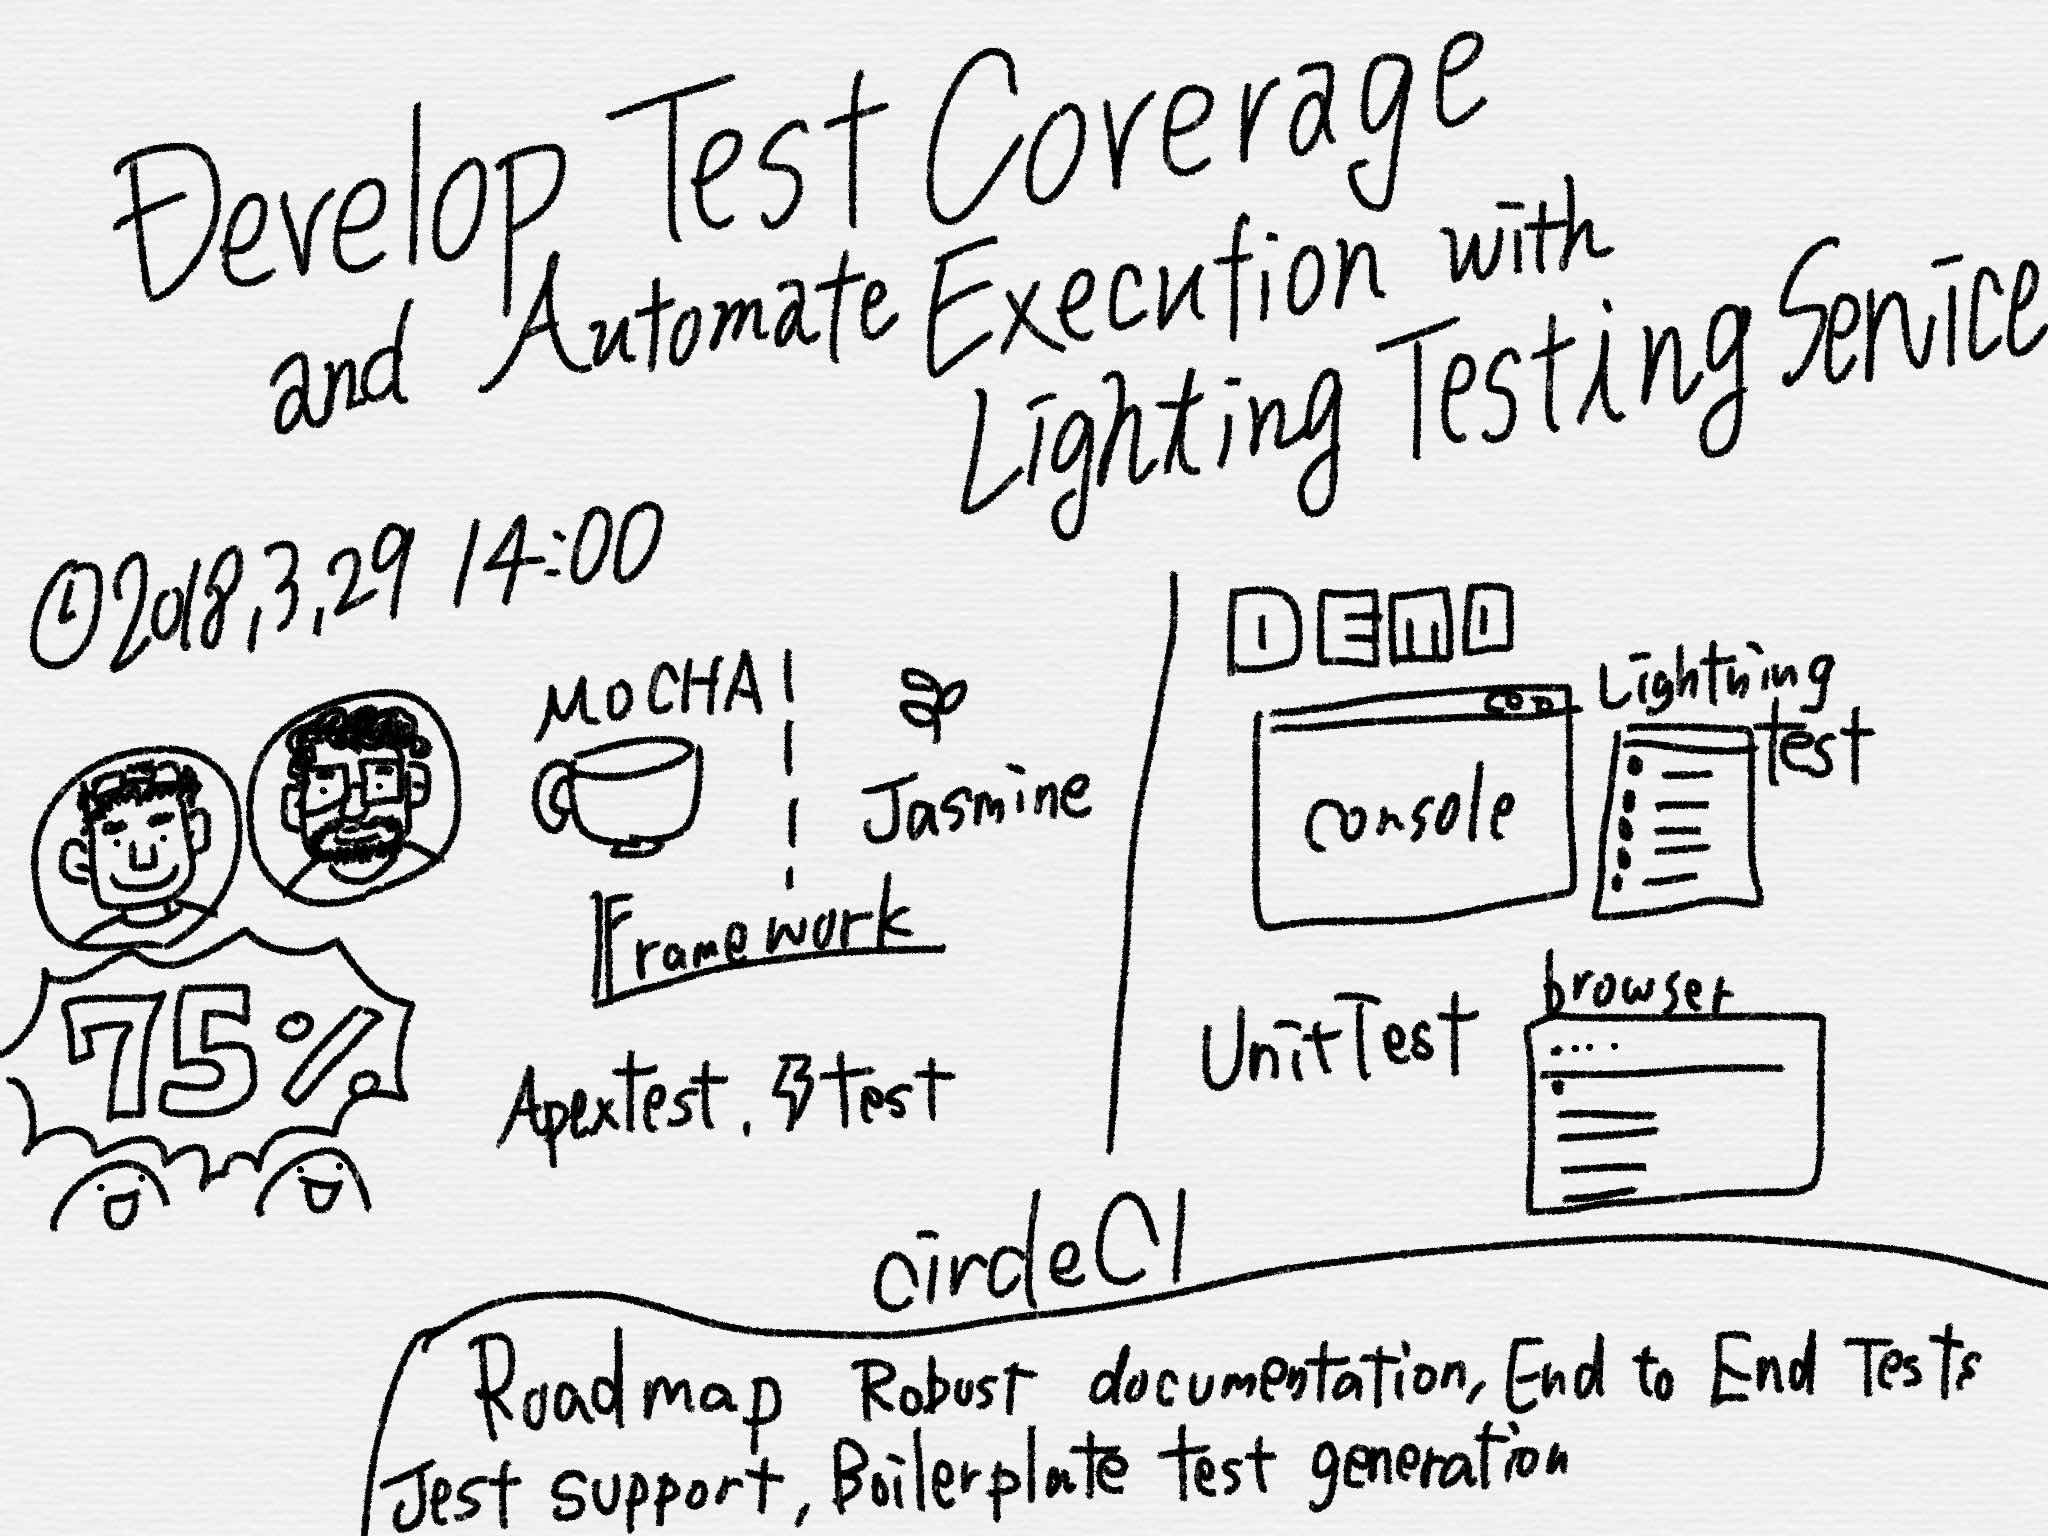 Develop Test Coverage
and Automate Execution with
Lighting Testing Service
2018,3,29 14:00
MOCHA
Jasmine
Framework
75%
Apextest. test
DEMO
console
Lightning
test
UnitTest
browser
circleCI
Roadmap Robust documentation, End to End Tests
Jest support, Boilerplate test generation